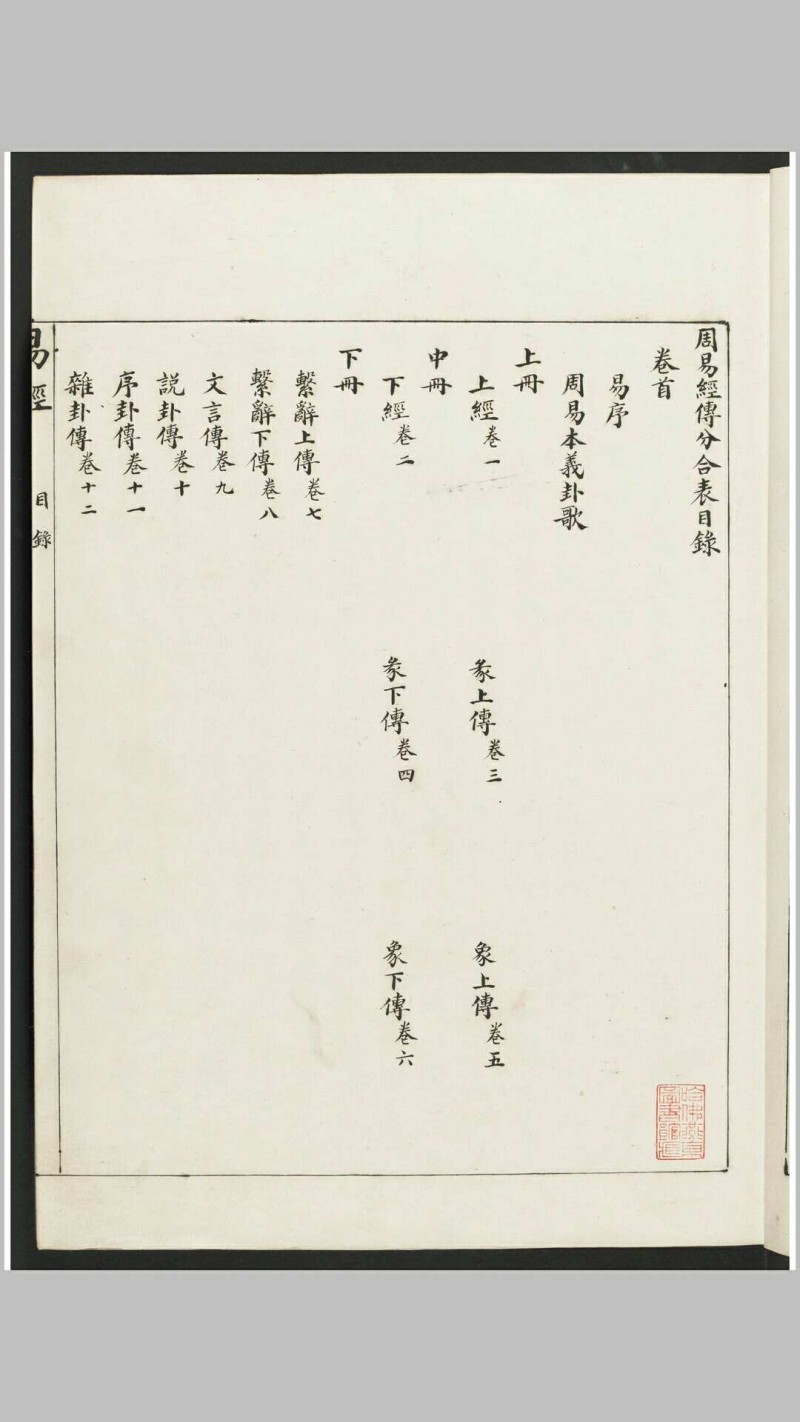 周易經傳分合表目錄
卷首
易序
周易本義卦歌
上冊
上經卷一 彖上傳卷三 象上傳卷五
中冊
下經卷二 彖下傳卷四 象下傳卷六
下冊
繫辭上傳卷七
繫辭下傳卷八
文言傳卷九
說卦傳卷十
序卦傳卷十一
雜卦傳卷十二
易經 目錄
哈佛燕京
圖書館